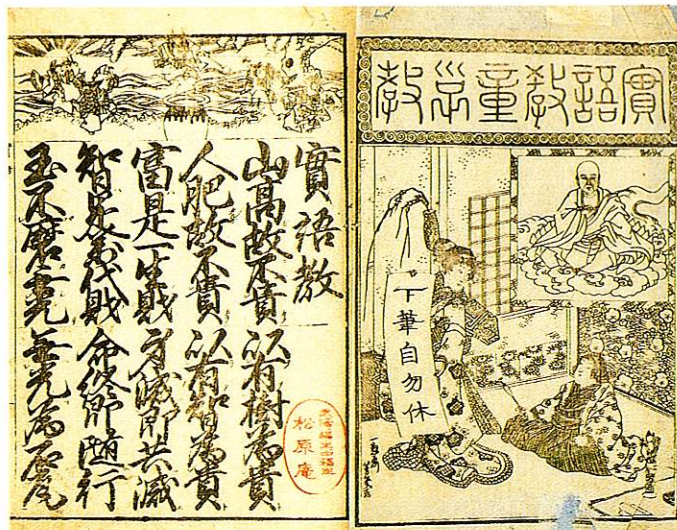 實語教童子教
下筆自勿休
實語教
山高故不貴 以有樹為貴
人肥故不貴 以有智為貴
富是一生財 身滅即共滅
智是万代財 命終即随行
玉不磨無光 無光為石瓦
松原庵